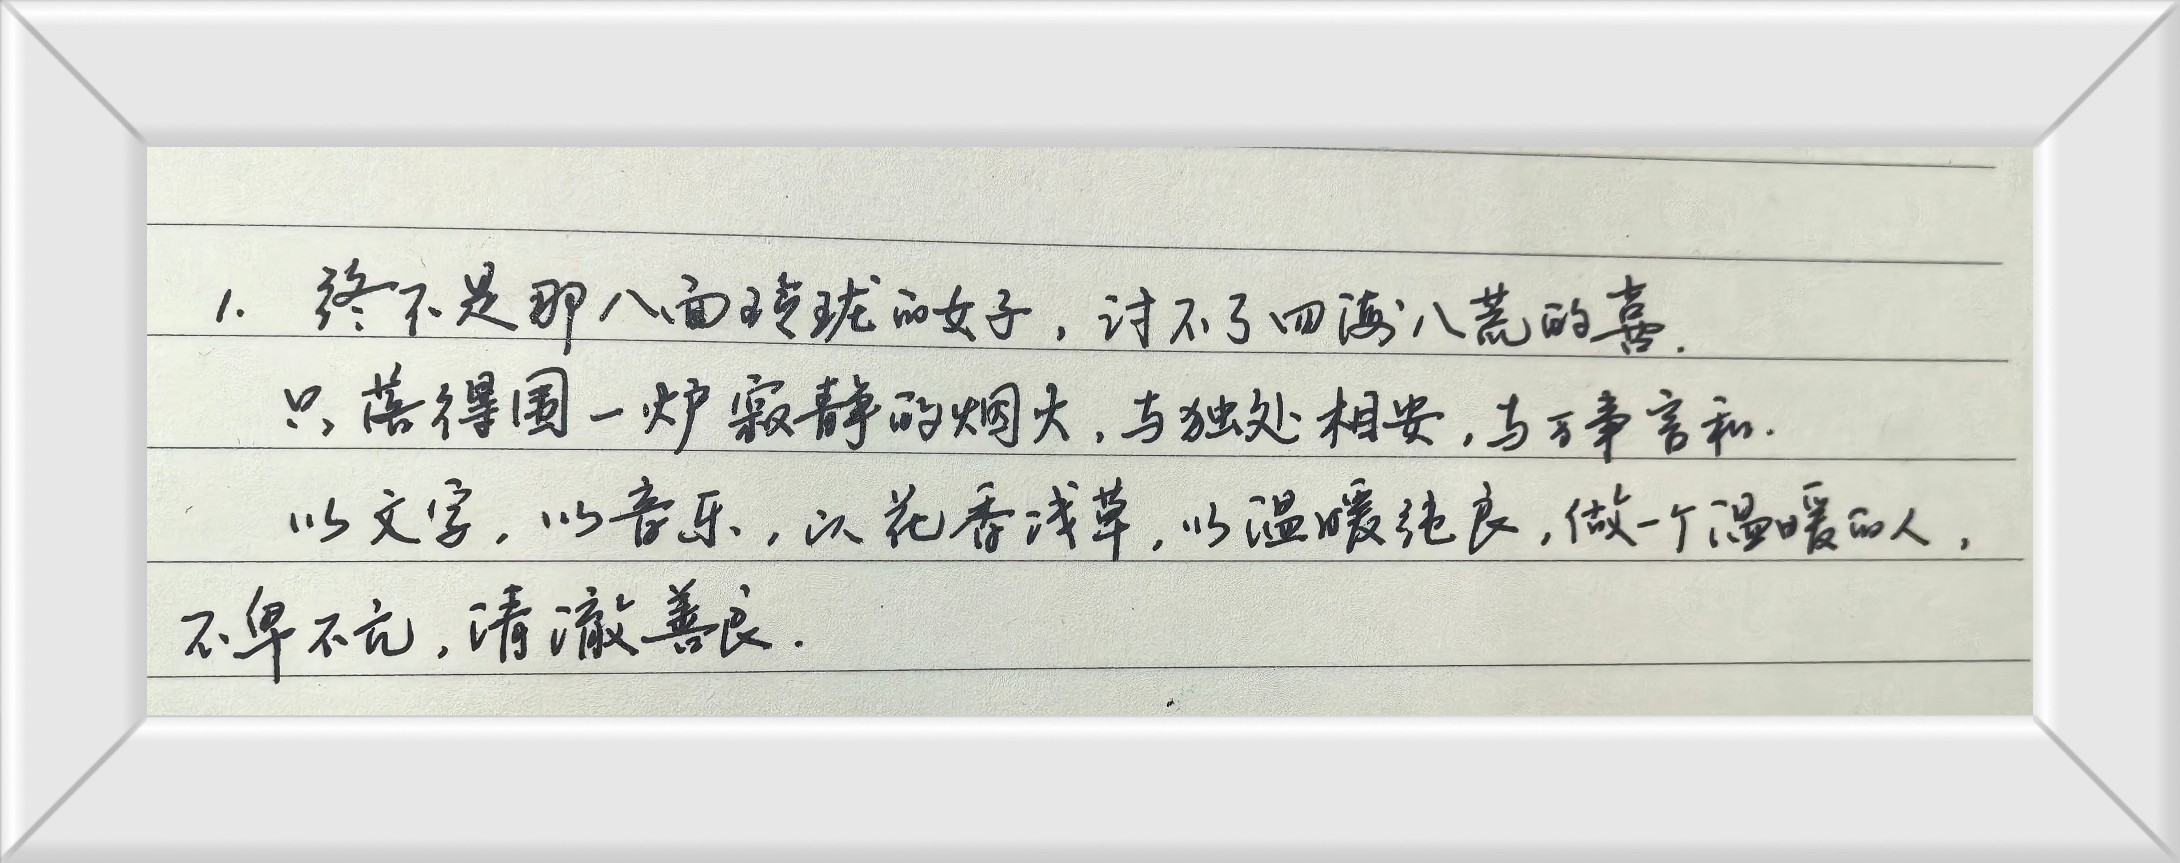 1. 终不是那八面玲珑的女子，讨不了四海八荒的喜.
只落得围一炉寂静的烟火，与独处相安，与万事言和.
以文字，以音乐，以花香浅草，以温暖纯良，做一个温暖的人，
不卑不亢，清澈善良.